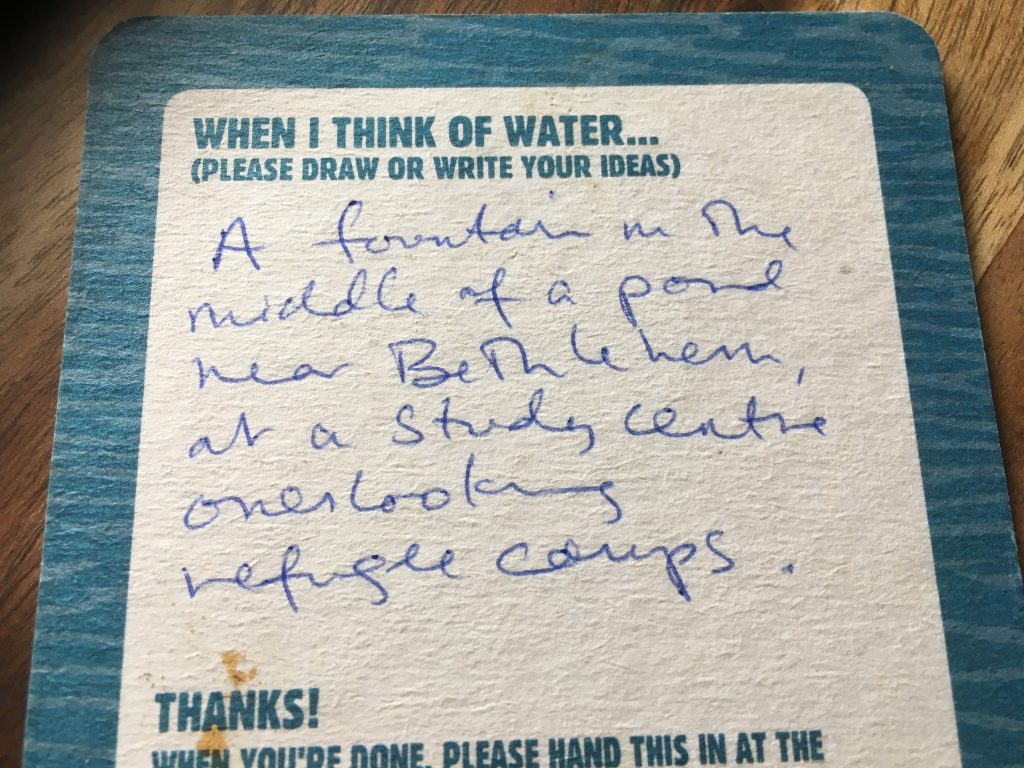 WHEN I THINK OF WATER...
(PLEASE DRAW OR WRITE YOUR IDEAS)
A fountain in the
middle of a pond
near Bethlehem,
at a study centre
overlooking
refugee camps.
THANKS!
WHEN YOU'RE DONE, PLEASE HAND THIS IN AT THE